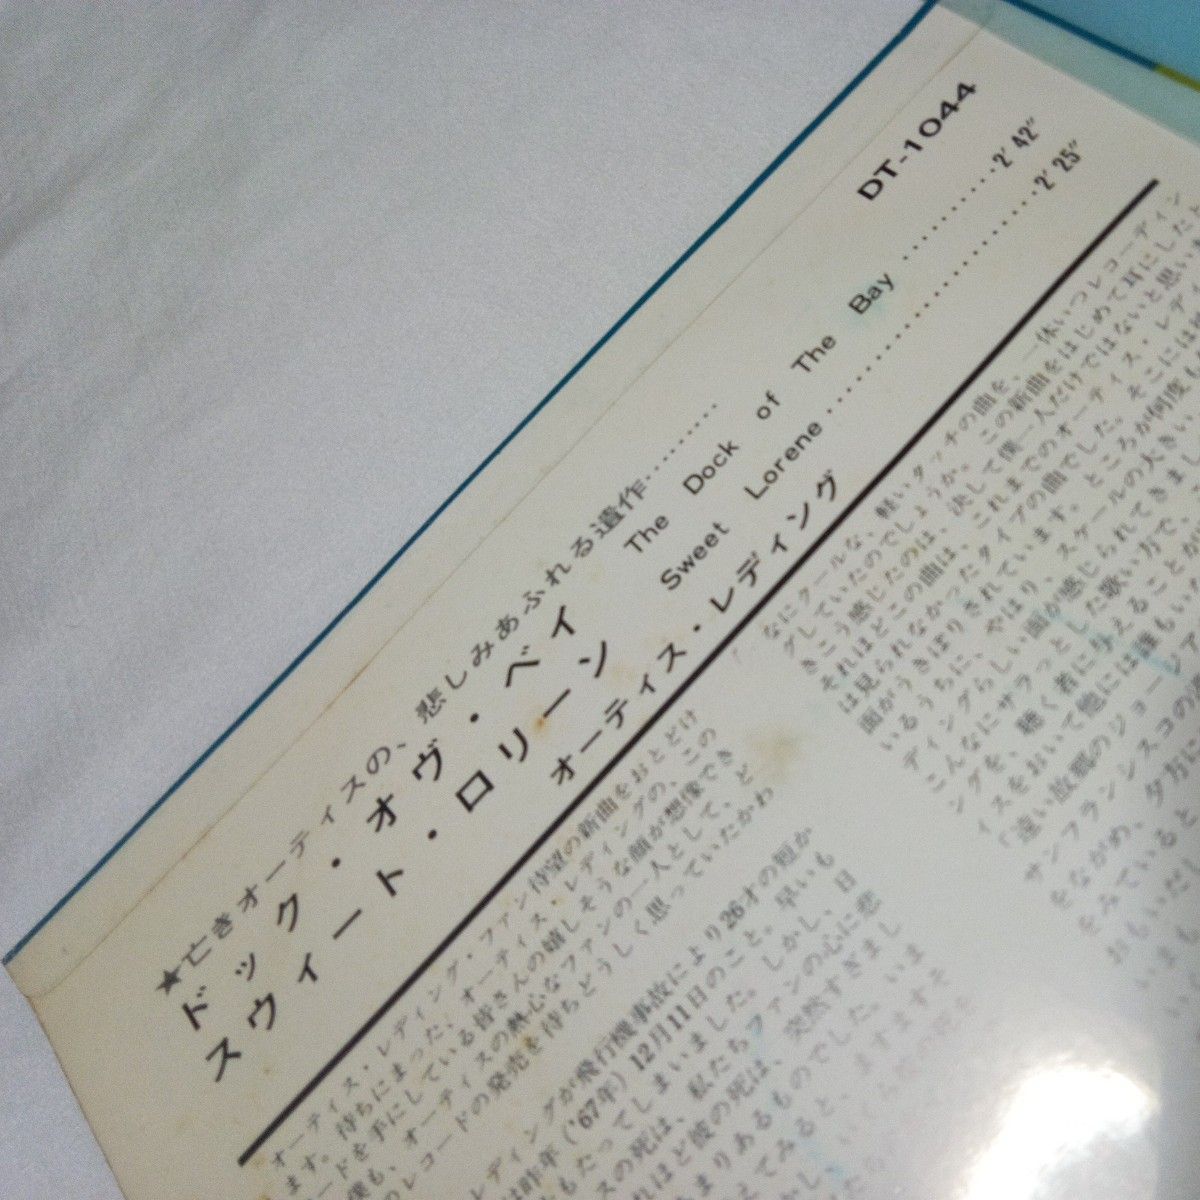 DT-1044
★亡きオーティスの、悲しみあふれる遺作………
ドック・オヴ・ベイ The Dock of The Bay ………2′42″
スウィート・ロリーン Sweet Lorene ………………2′25″
オーティス・レディング
オーティス・レディング・ファン待望の新曲をおとどけ
ます。待ちにまった、オーティス・レディングの、この
ードを手にしている皆さんの嬉しそうな顔が想像でき
僕も、オーティスの熱心なファンの一人として、と
のレコードの発売を待ちどうしく思っていたかわ
レディングが飛行機事故により26才の短か
は昨年('67年)12月11日のこと。早いも
もたってしまいました。しかし、日
スの死は、私たちファンの心に悲
れほど彼の死は、突然すぎまし
まりあるものでした。いま
えてみると、ますますそ
なにクールな、軽いタッチの曲を、一体いつレコーディン
グしていたのでしょうか。この新曲をはじめて耳にしたと
きこう感じたのは、決して僕一人だけではないと思いま
それほどこの曲は、これまでのオーティス・レディ
は見られなかったタイプの曲でした。そこには彼
面がうきぼりされています。ところが何度も
いるうちに、やはり、スケールの大きい
ディングらしい面が感じられてきまし
こんなにサラっとした歌い方で、
ングを、聴く者に与えることが
ィスをおいて他には誰もいな
「遠い故郷のジョージア
サンフランシスコの
をながめ、夕方に
をみていると
おもいだし